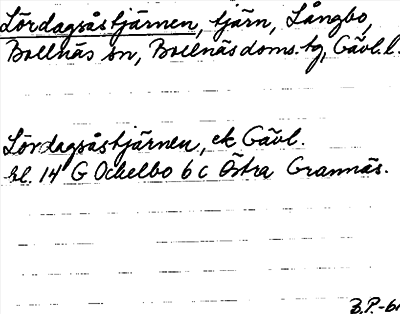 Lördagsåstjärnen, tjärn, Långbo,
Bollnäs sn, Bollnäs doms.tg, Gävl.l.
Lördagsåstjärnen, ek Gävl.
bl. 14 G Ockelbo 6 c Östra Grannäs.
B.P.-61